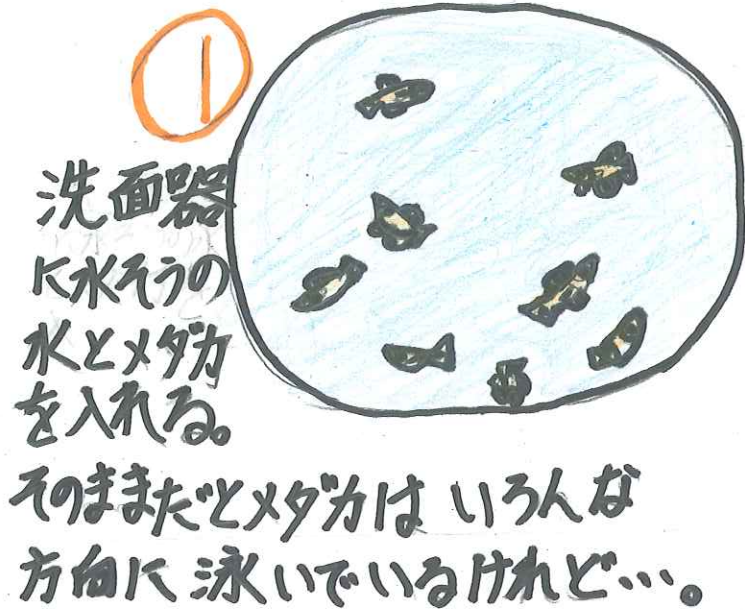 ①
洗面器
に水そうの
水とメダカ
を入れる。
そのままだとメダカは いろんな
方向に 泳いでいるけれど…。